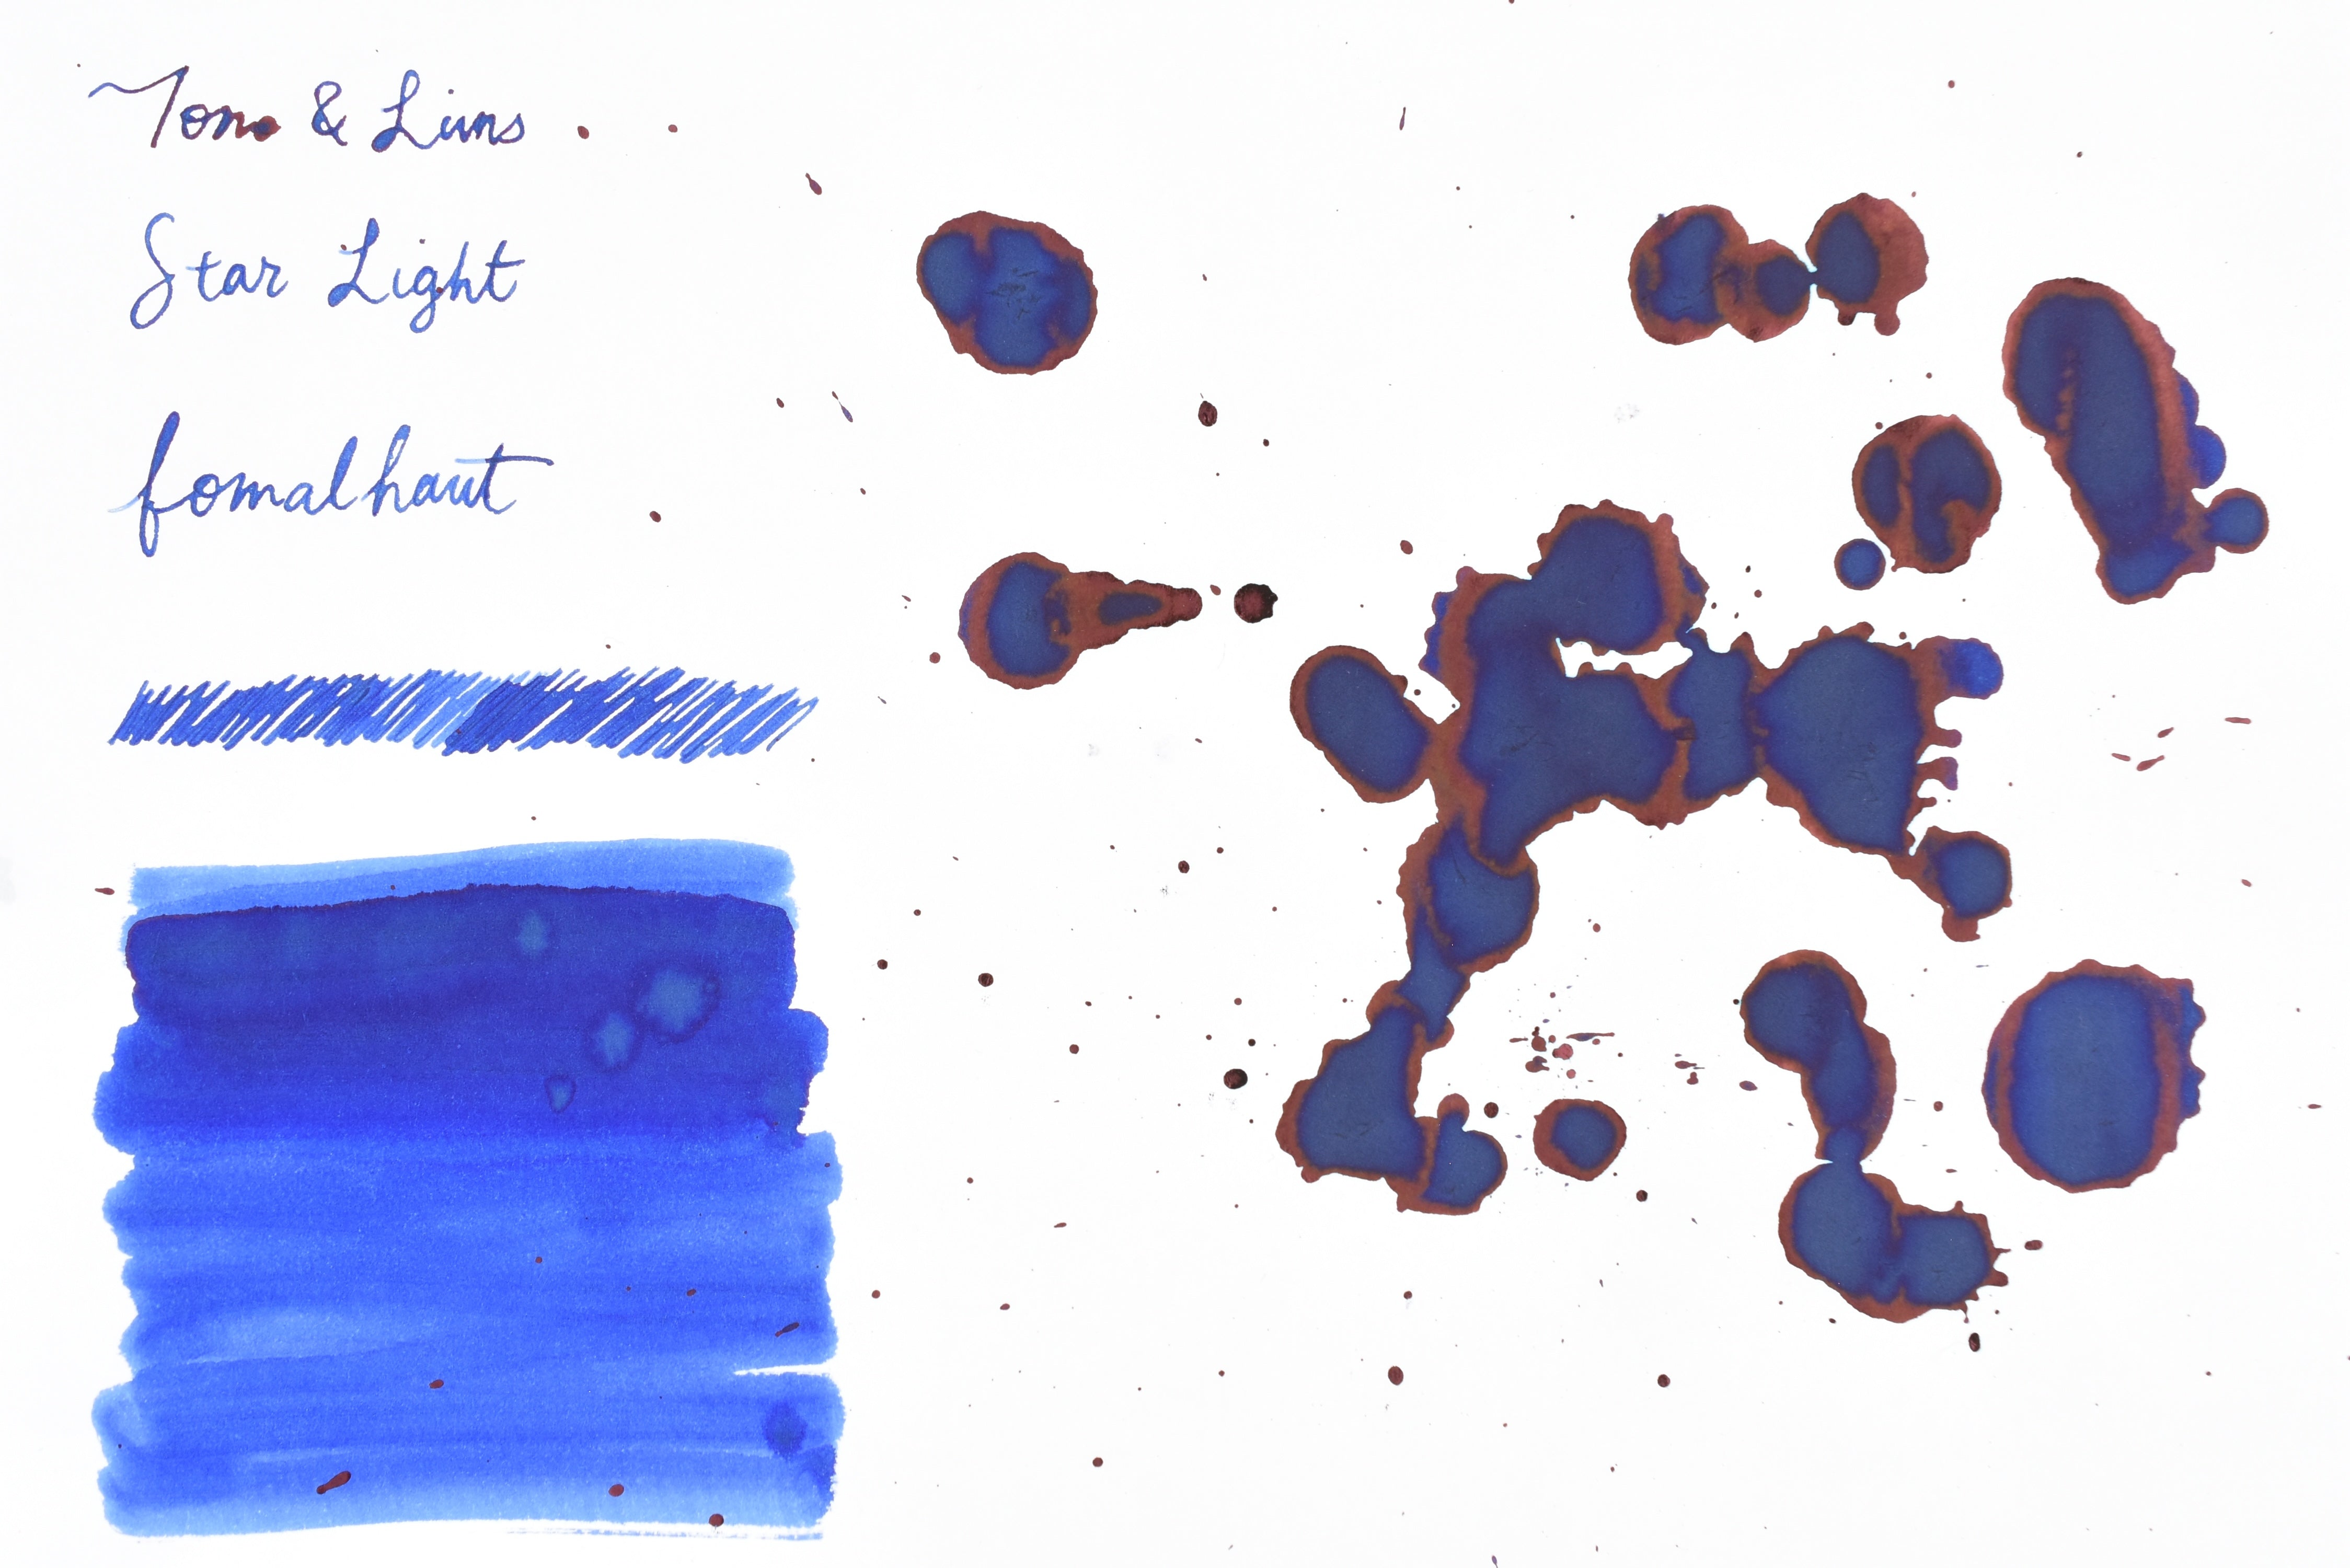 Tono & Lims
Star Light
fomalhaut